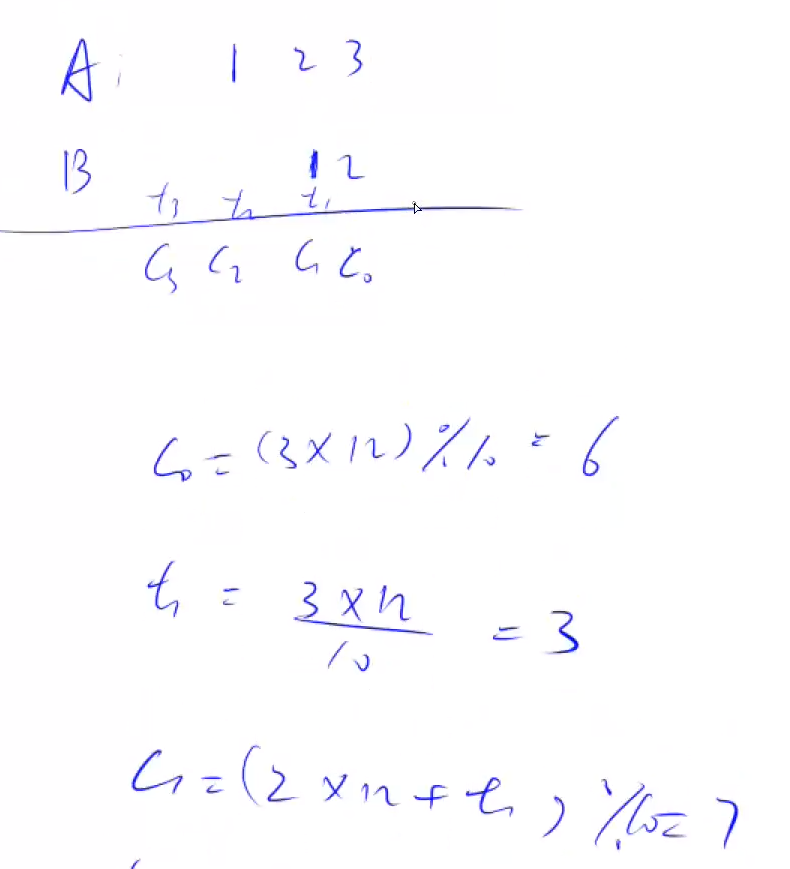 A: 1 2 3
B 12
t₃ t₂ t₁
C₃ C₂ C₁ C₀
C₀ = (3×12)%10 = 6
t₁ = 3×12 / 10 = 3
C₁ = (2×12+t₁)%10=7